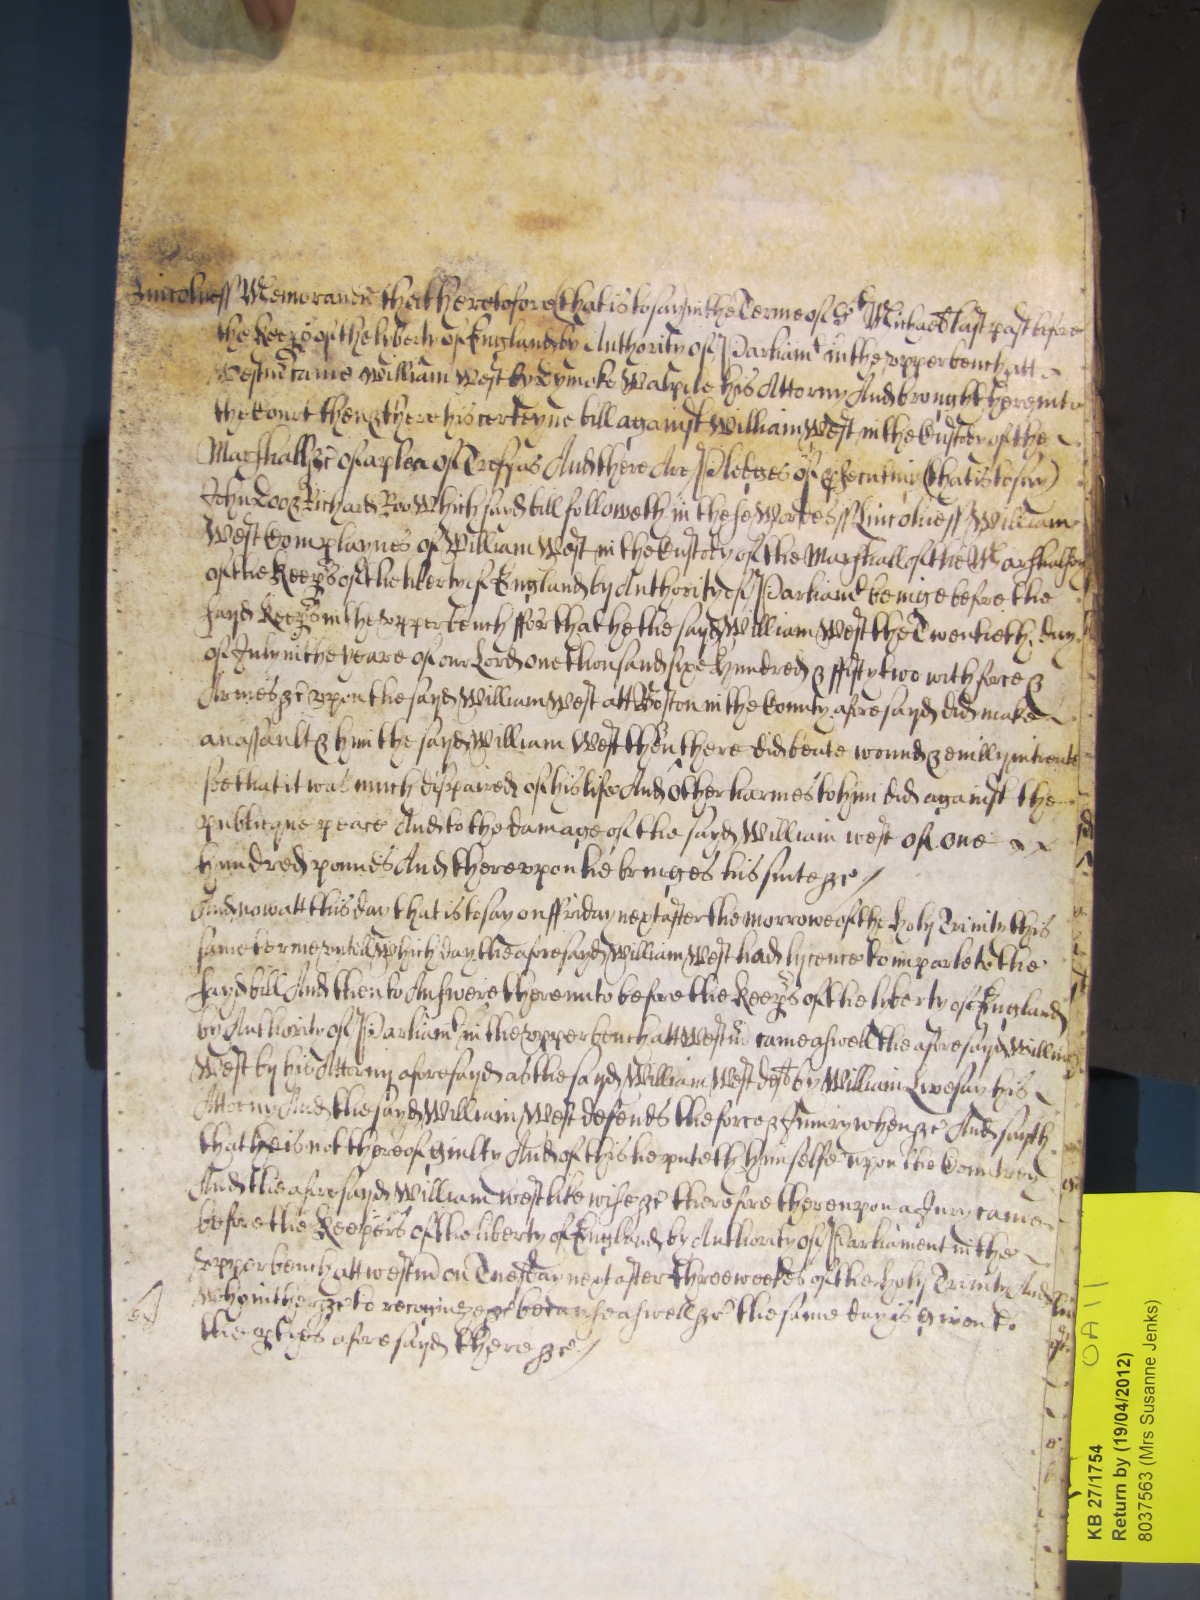 Lincolne ss Memorand that heretofore (that is to say) in the Terme of St Michaell last past before
the Keeps of the liberty of England by Authority of Parliamt in the upper bench att
Westm came William West by Tymoke Walpole his Attorny And brought here into
the Court then & there his certeyne bill against William West in the Custody of the
Marshall &c of a plea of Trespas And there Are Pledges of psecuting (that is to say)
John Doo & Richard Roo Which sayd bill followeth in these Wordes ss Lincolne ss William
West Complaynes of William West in the Custody of the Marshall of the Marshalsey
of the Keeps of the liberty of England by Authority of Parliamt beinge before the
sayd Keeps in the upper bench ffor that he the sayd William West the Twentieth day
of July in the yeare of our Lord one thousand sixe hundred & ffifty two with force &
Armes &c upon the sayd William West att Boston in the County aforesayd did make
an assault & him the sayd William West then there did beate wound & evilly intreate
soe that it was much dispaired of his life And other harmes to him did against the
publique peace And to the damage of the sayd William west of one
hundred pounds And thereupon he bringes his suite &c
And now att this day that is to say on ffriday next after the morrowe of the holy Trinity this
same terme untill Which day the aforesayd William West had lycence to imparle to the
sayd bill And then to Answere thereunto before the Keeps of the liberty of England
by Authority of Parliamt in the upper bench att Westm came aswell the aforesayd William
West by his Attorny aforesayd as the sayd William West deft by William Livesay his
Attorny And the sayd William West defends the force & Iniury when &c And sayth
that he is not thereof guilty And of this he putteth himselfe upon the Countrey
And the aforesayd William West likewise &c therefore thereupon a Jury came
before the Keepers of the liberty of England by Authority of Parliament in the
upper bench att westm on Tuesday next after three weekes of the holy Trinity And
Who neither &c to recognize &c because aswell &c the same day is given to
the pties aforesayd there &c
KB 27/1754
Return by (19/04/2012)
8037563 (Mrs Susanne Jenks)